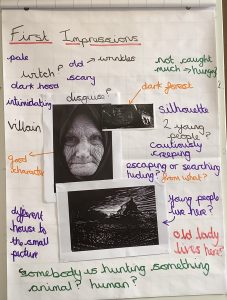 First Impressions
pale
old → wrinkles
witch?
scary
not caught
much → hungry
dark hood
disguise?
dark forest
intimidating
Silhouette
villain
2 young
people?
Cautiously
creeping
good
character
escaping or searching
hiding?
from what?
different
house to
the small
picture
Young people
live here?
old lady
lives here?
Somebody is hunting something
animal? human?